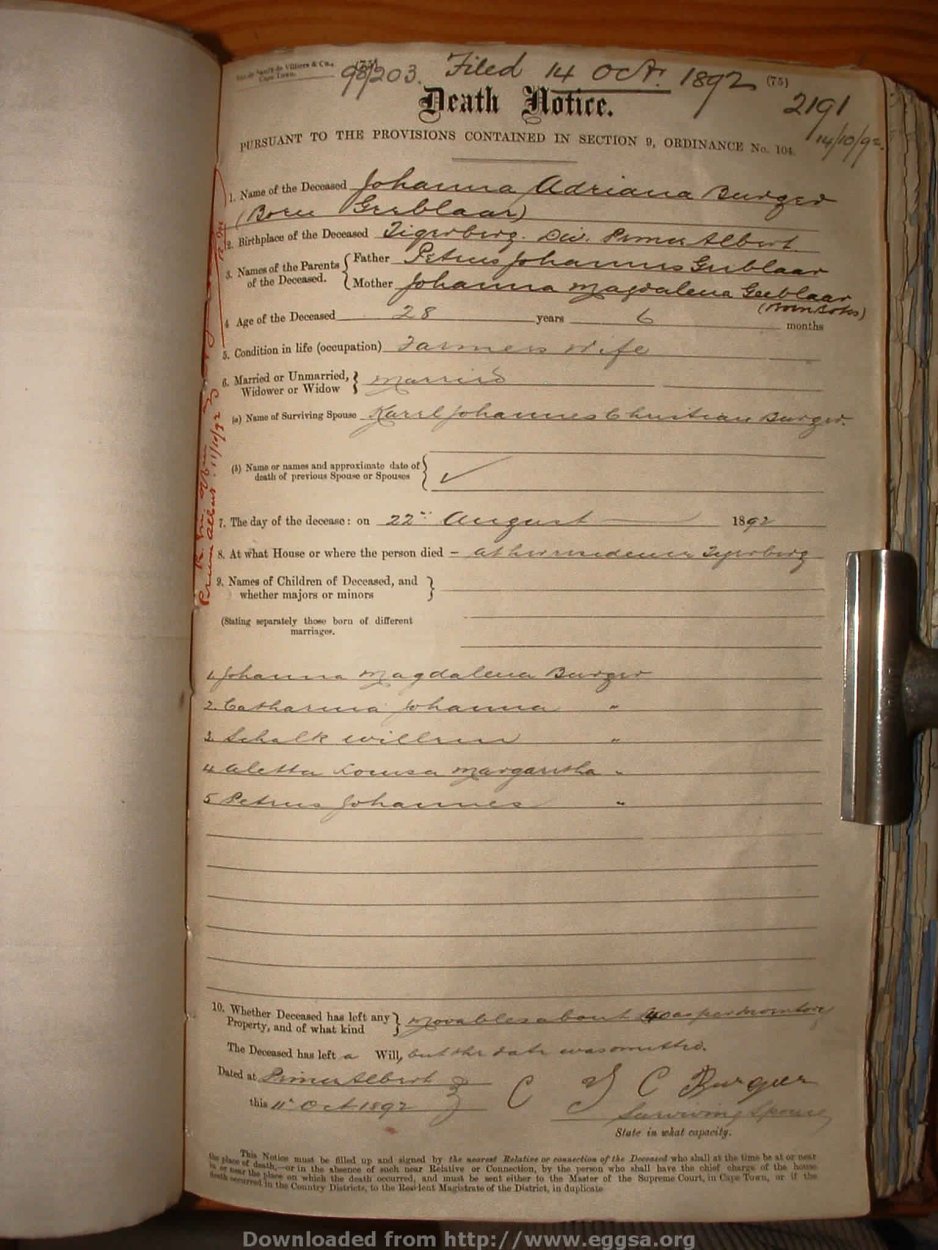 98/203. Filed 14 Oct. 1892 (75)
Death Notice. 2191
14/10/92
PURSUANT TO THE PROVISIONS CONTAINED IN SECTION 9, ORDINANCE No. 104.
1. Name of the Deceased Johanna Adriana Burger
(Born Geeblaar)
2. Birthplace of the Deceased Tigerberg. Div. Prince Albert
3. Names of the Parents of the Deceased. Father Petrus Johannes Geeblaar
Mother Johanna Magdalena Geeblaar
(Born Botes)
4 Age of the Deceased 28 years 6 months
5. Condition in life (occupation) Farmers Wife
6. Married or Unmarried, Widower or Widow married
(a) Name of Surviving Spouse Karel Johannes Christian Burger.
(b) Name or names and approximate date of
death of previous Spouse or Spouses ✓
7. The day of the decease: on 22nd August 1892
8. At what House or where the person died – at her residence Tigerberg
9. Names of Children of Deceased, and
whether majors or minors
(Stating separately those born of different
marriages.
1. Johanna Magdalena Burger
2. Catharina Johanna "
3. Schalk Willem "
4 Aletta Louisa Margaritha "
5 Petrus Johannes "
10. Whether Deceased has left any
Property, and of what kind Movables about as per inventory
The Deceased has left a Will, but the date was omitted.
Dated at Prince Albert C J C Burger
this 11th Oct 1892 Surviving Spouse
State in what capacity.
This Notice must be filled up and signed by the nearest Relative or connection of the Deceased who shall at the time be at or near
the place of death,—or in the absence of such near Relative or Connection, by the person who shall have the chief charge of the house
in or near the place on which the death occurred, and must be sent either to the Master of the Supreme Court, in Cape Town, or if the
death occurred in the Country Districts, to the Resident Magistrate of the District, in duplicate
Downloaded from http://www.eggsa.org